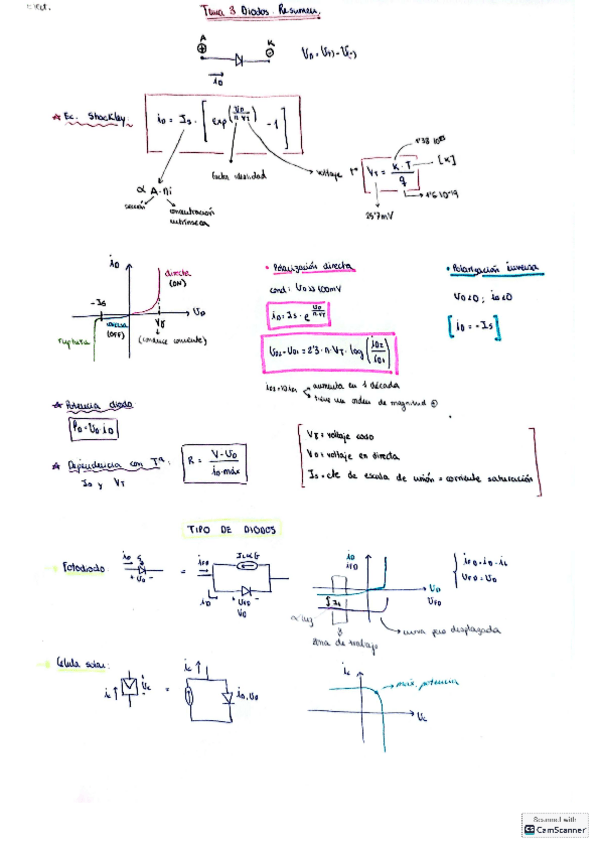 Elect.
Tema 3 Diodos. Resumen.
A K
⊕ ⊖
iD
UD = U(+) - U(-)
★ Ec. Shockley: iD = Is · [exp(UD/n·VT) - 1]
α A·ni
sección
concentración intrínseca
factor idealidad
voltaje Tª
VT = K·T/q
1'38 10²³
[K]
1'6 10^-19
25'7mV
iD
directa
(ON)
-Is
inversa
(OFF)
ruptura
Vγ
UD
(conduce corriente)
• Polarización directa
cond: UD ≫ 100mV
iD = Is · e^(UD/n·VT)
UD2 - UD1 = 2'3 · n · VT · log(iD2/iD1)
aumenta en 1 década
tiene un orden de magnitud ⊕
• Polarización inversa
UD<0 ; iD<0
[iD = -Is]
★ Potencia diodo
PD = UD · iD
★ Dependencia con Tª:
Is y VT
R = V-UD/iD máx
Vγ = voltaje codo
VD = voltaje en directa
Is = cte de escala de unión = corriente saturación
TIPO DE DIODOS
→ Fotodiodo:
iD
+ UD -
=
iFD
iD
+ UFD -
UD
iD
iFD
UD
UFD
α luz
zona de trabajo
curva pero desplazada
iFD = iD - iL
UFD = UD
→ Célula solar:
ic
Uc
=
ic
iD, UD
ic
máx. potencia
Uc
Scanned with
CS CamScanner